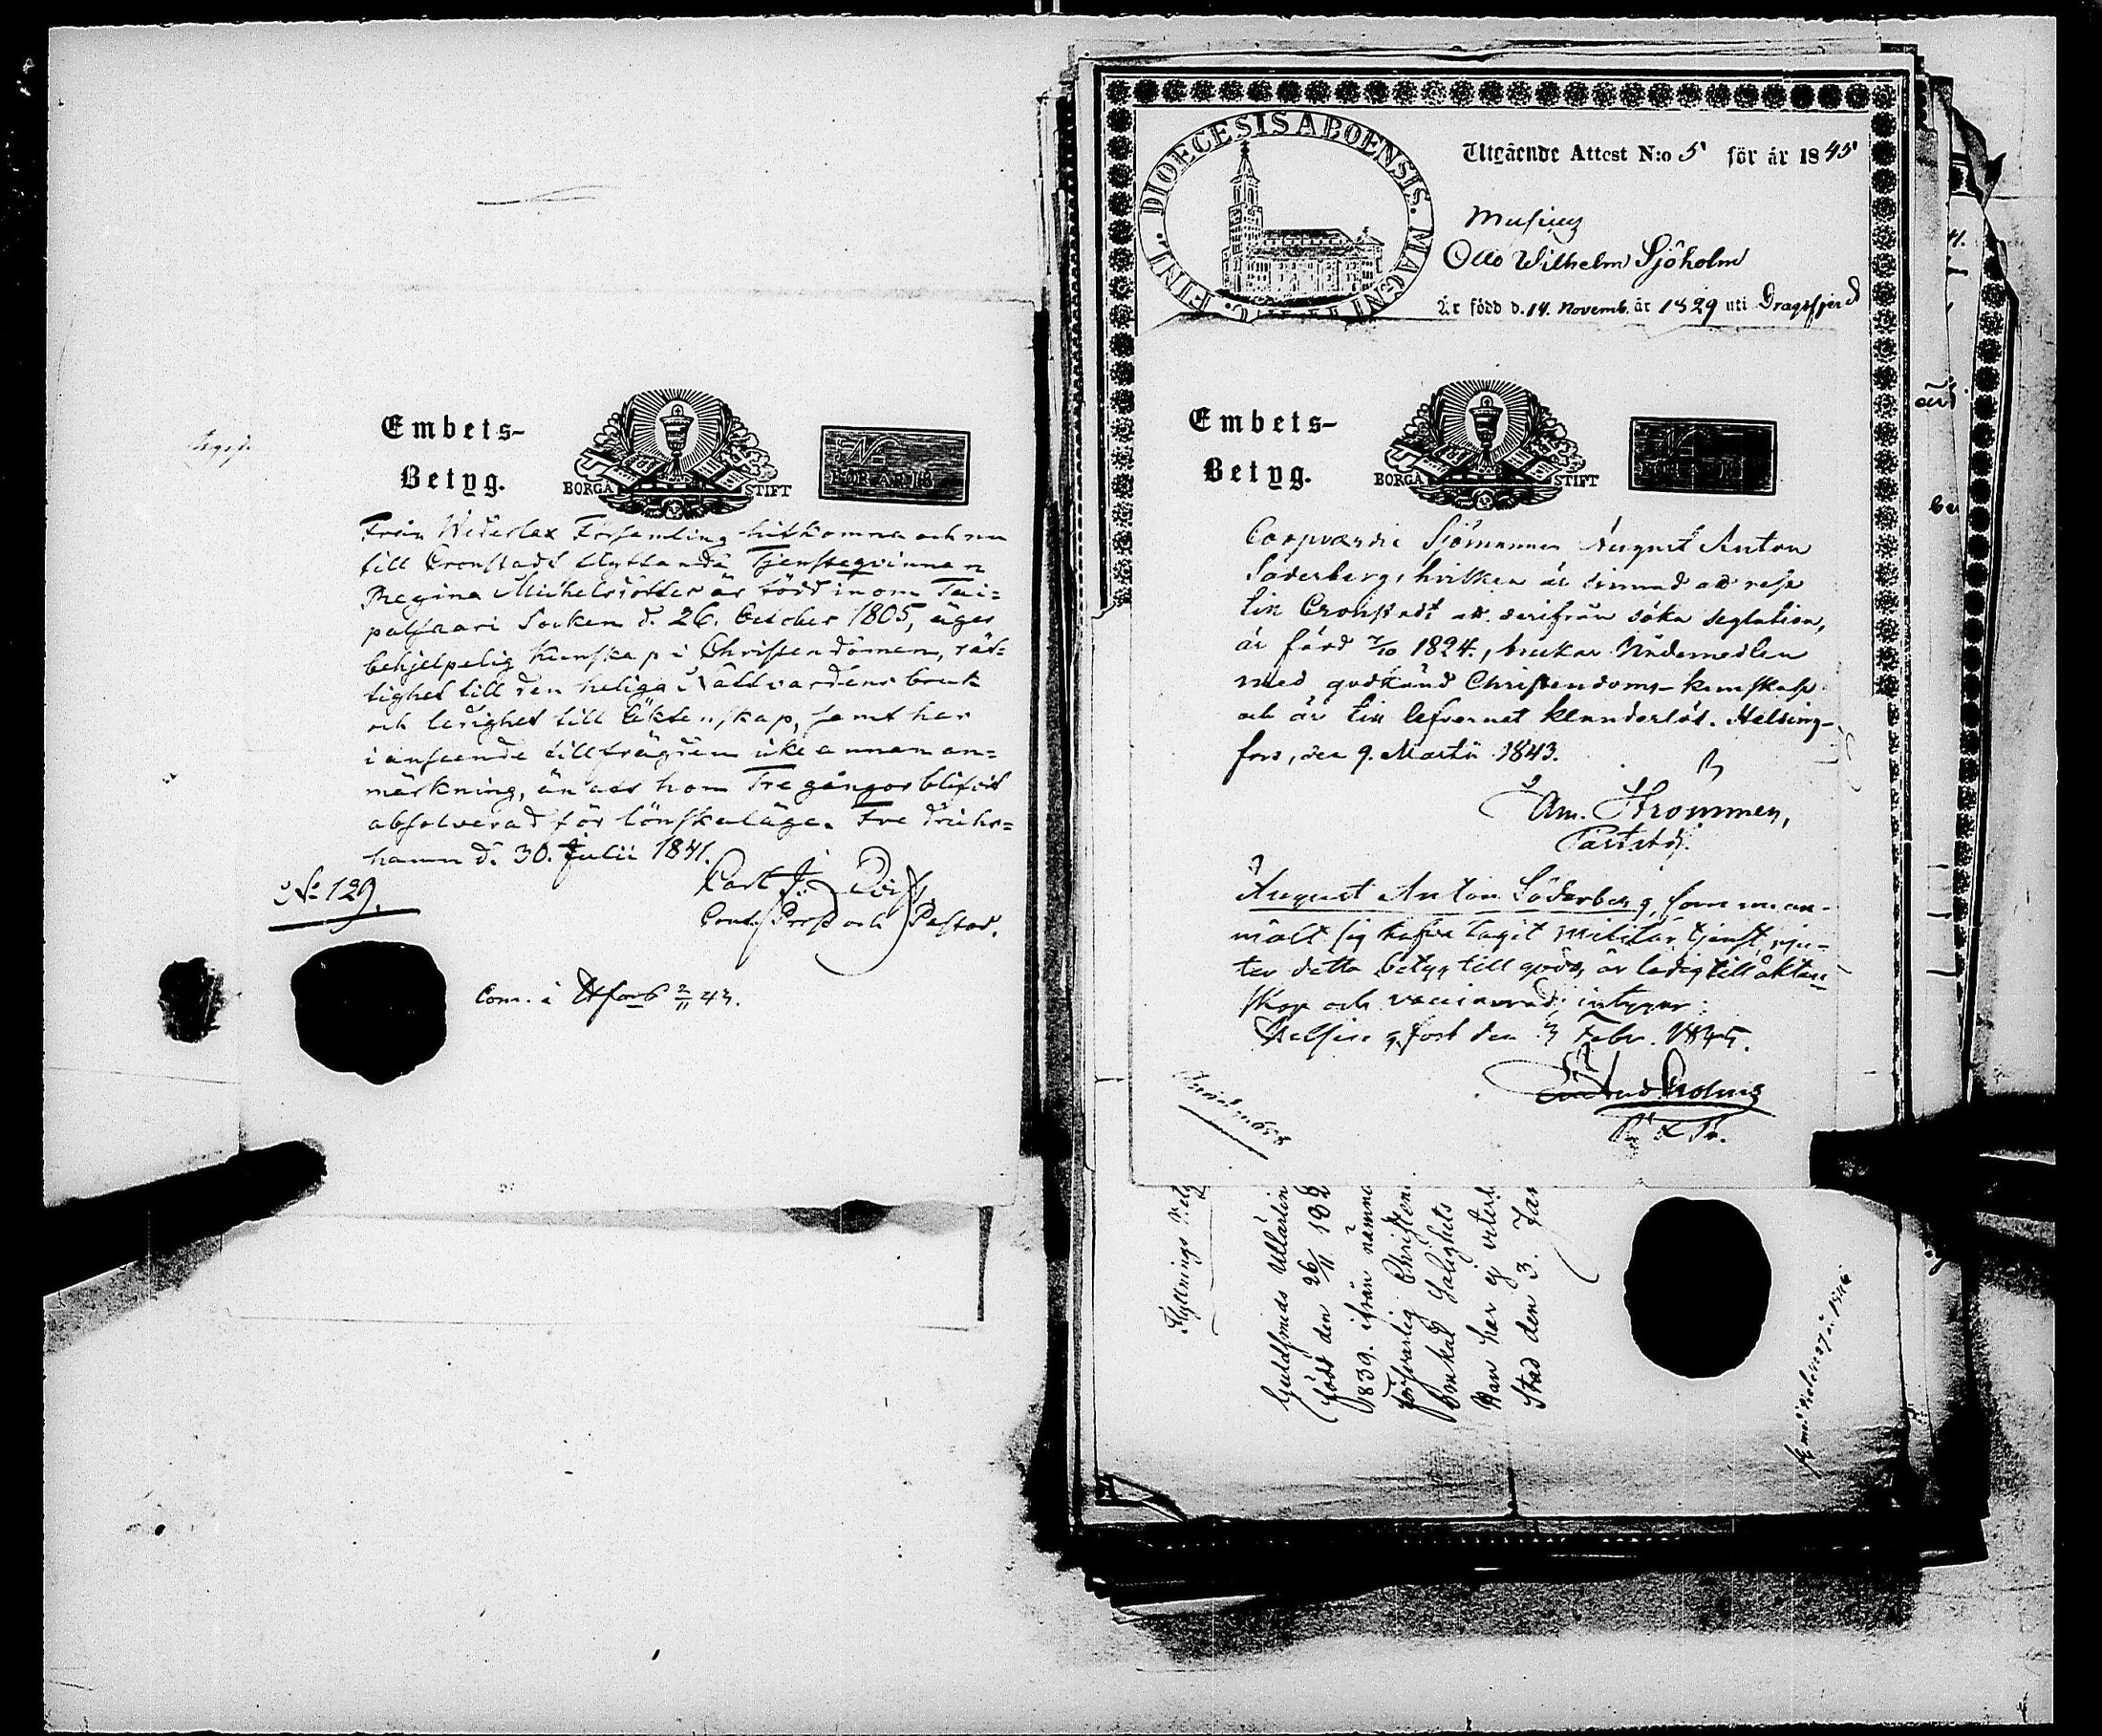 Embets-
Betyg.
BORGÅ STIFT
No
FÖR ÅR 18
Från Wederlax Församling hitkomna och nu
till Cronstadt flyttande Tjensteqvinnan
Regina Michelsdotter är född inom Tai-
palsaari Socken d. 26. October 1805, äger
behjelpelig kunskap i Christendomen, rät-
tighet till den heliga Nattvardens bruk
och ledighet till äktenskap, samt har
i anseende till frägden icke annan an-
märkning, än att hon Tre gångor blifvit
absolverad för lönskaläge. Fredrichs-
hamn d. 30. Julii 1841.
Carl J.
Cont. Prost och Pastor.
No 129.
Com. i Hfors 2/11 43.
DIOECESIS ABOENSIS. MAGNI FINL.
Utgående Attest N:o 5 för år 1845
Otto Wilhelm Sjöholm
Är född d. 14. Novemb. år 1829 uti Dragsfjerd
Embets-
Betyg.
BORGÅ STIFT
Coopværdie Sjömannen August Anton
Söderberg, hvilken är sinnad att resa
till Cronstadt att derifrån söka seglation,
är född 7/10 1824, brukar Nådemedlen
med godkänd Christendoms-kunskap
och är till lefvernet klanderlös. Helsing-
fors, den 9. Martii 1843.
Am. Strommen,
August Anton Söderberg, som nu an-
mält sig hafva tagit militär tjenst, nju-
ter detta betyg till godo, är ledig till äkten-
skap och vaccinerad; intygar:
Helsingfors den 3 Febr. 1845.
Flyttnings Betyg
Guldsmeds Utlärlin
född den 26/11 182
1839. ifrån nämnd
försvarlig Christen
Han har ej veterl
Stad den 3. Jan